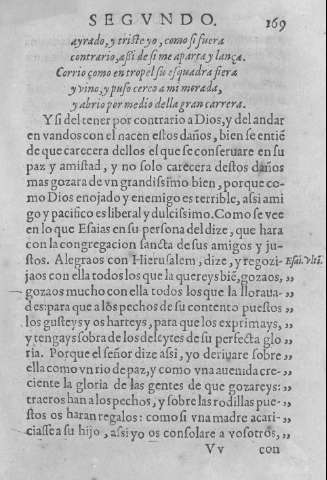 SEGVNDO. 169
ayrado, y triste yo, como si fuera
contrario, assi de si me aparta y lança.
Corrio como en tropel su esquadra fiera
y vino, y puso cerco a mi morada,
y abrio por medio della gran carrera.
Y si del tener por contrario a Dios, y del andar
en vandos con el nacen estos daños, bien se entiē
de que carecera dellos el que se conseruare en su
paz y amistad, y no solo carecera destos daños
mas gozara de vn grandissimo bien, porque co-
mo Dios enojado y enemigo es terrible, assi ami
go y pacifico es liberal y dulcissimo. Como se vee
en lo que Esaias en su persona del dize, que hara
con la congregacion sancta de sus amigos y ju-
stos. Alegraos con Hierusalem, dize, y regozi- Esai. vlti.
jaos con ella todos los que la quereys biē, gozaos, ,,
gozaos mucho con ella todos los que la lloraua- ,,
des: para que a los pechos de su contento puestos ,,
los gusteys y os harteys, para que los exprimays, ,,
y tengays sobra de los deleytes de su perfecta glo ,,
ria. Porque el señor dize assi, yo deriuare sobre ,,
ella como vn rio de paz, y como vna auenida cre- ,,
ciente la gloria de las gentes de que gozareys: ,,
traeros han a los pechos, y sobre las rodillas pue- ,,
stos os haran regalos: como si vna madre acari- ,,
ciasse a su hijo, assi yo os consolare a vosotros, ,,
Vv con